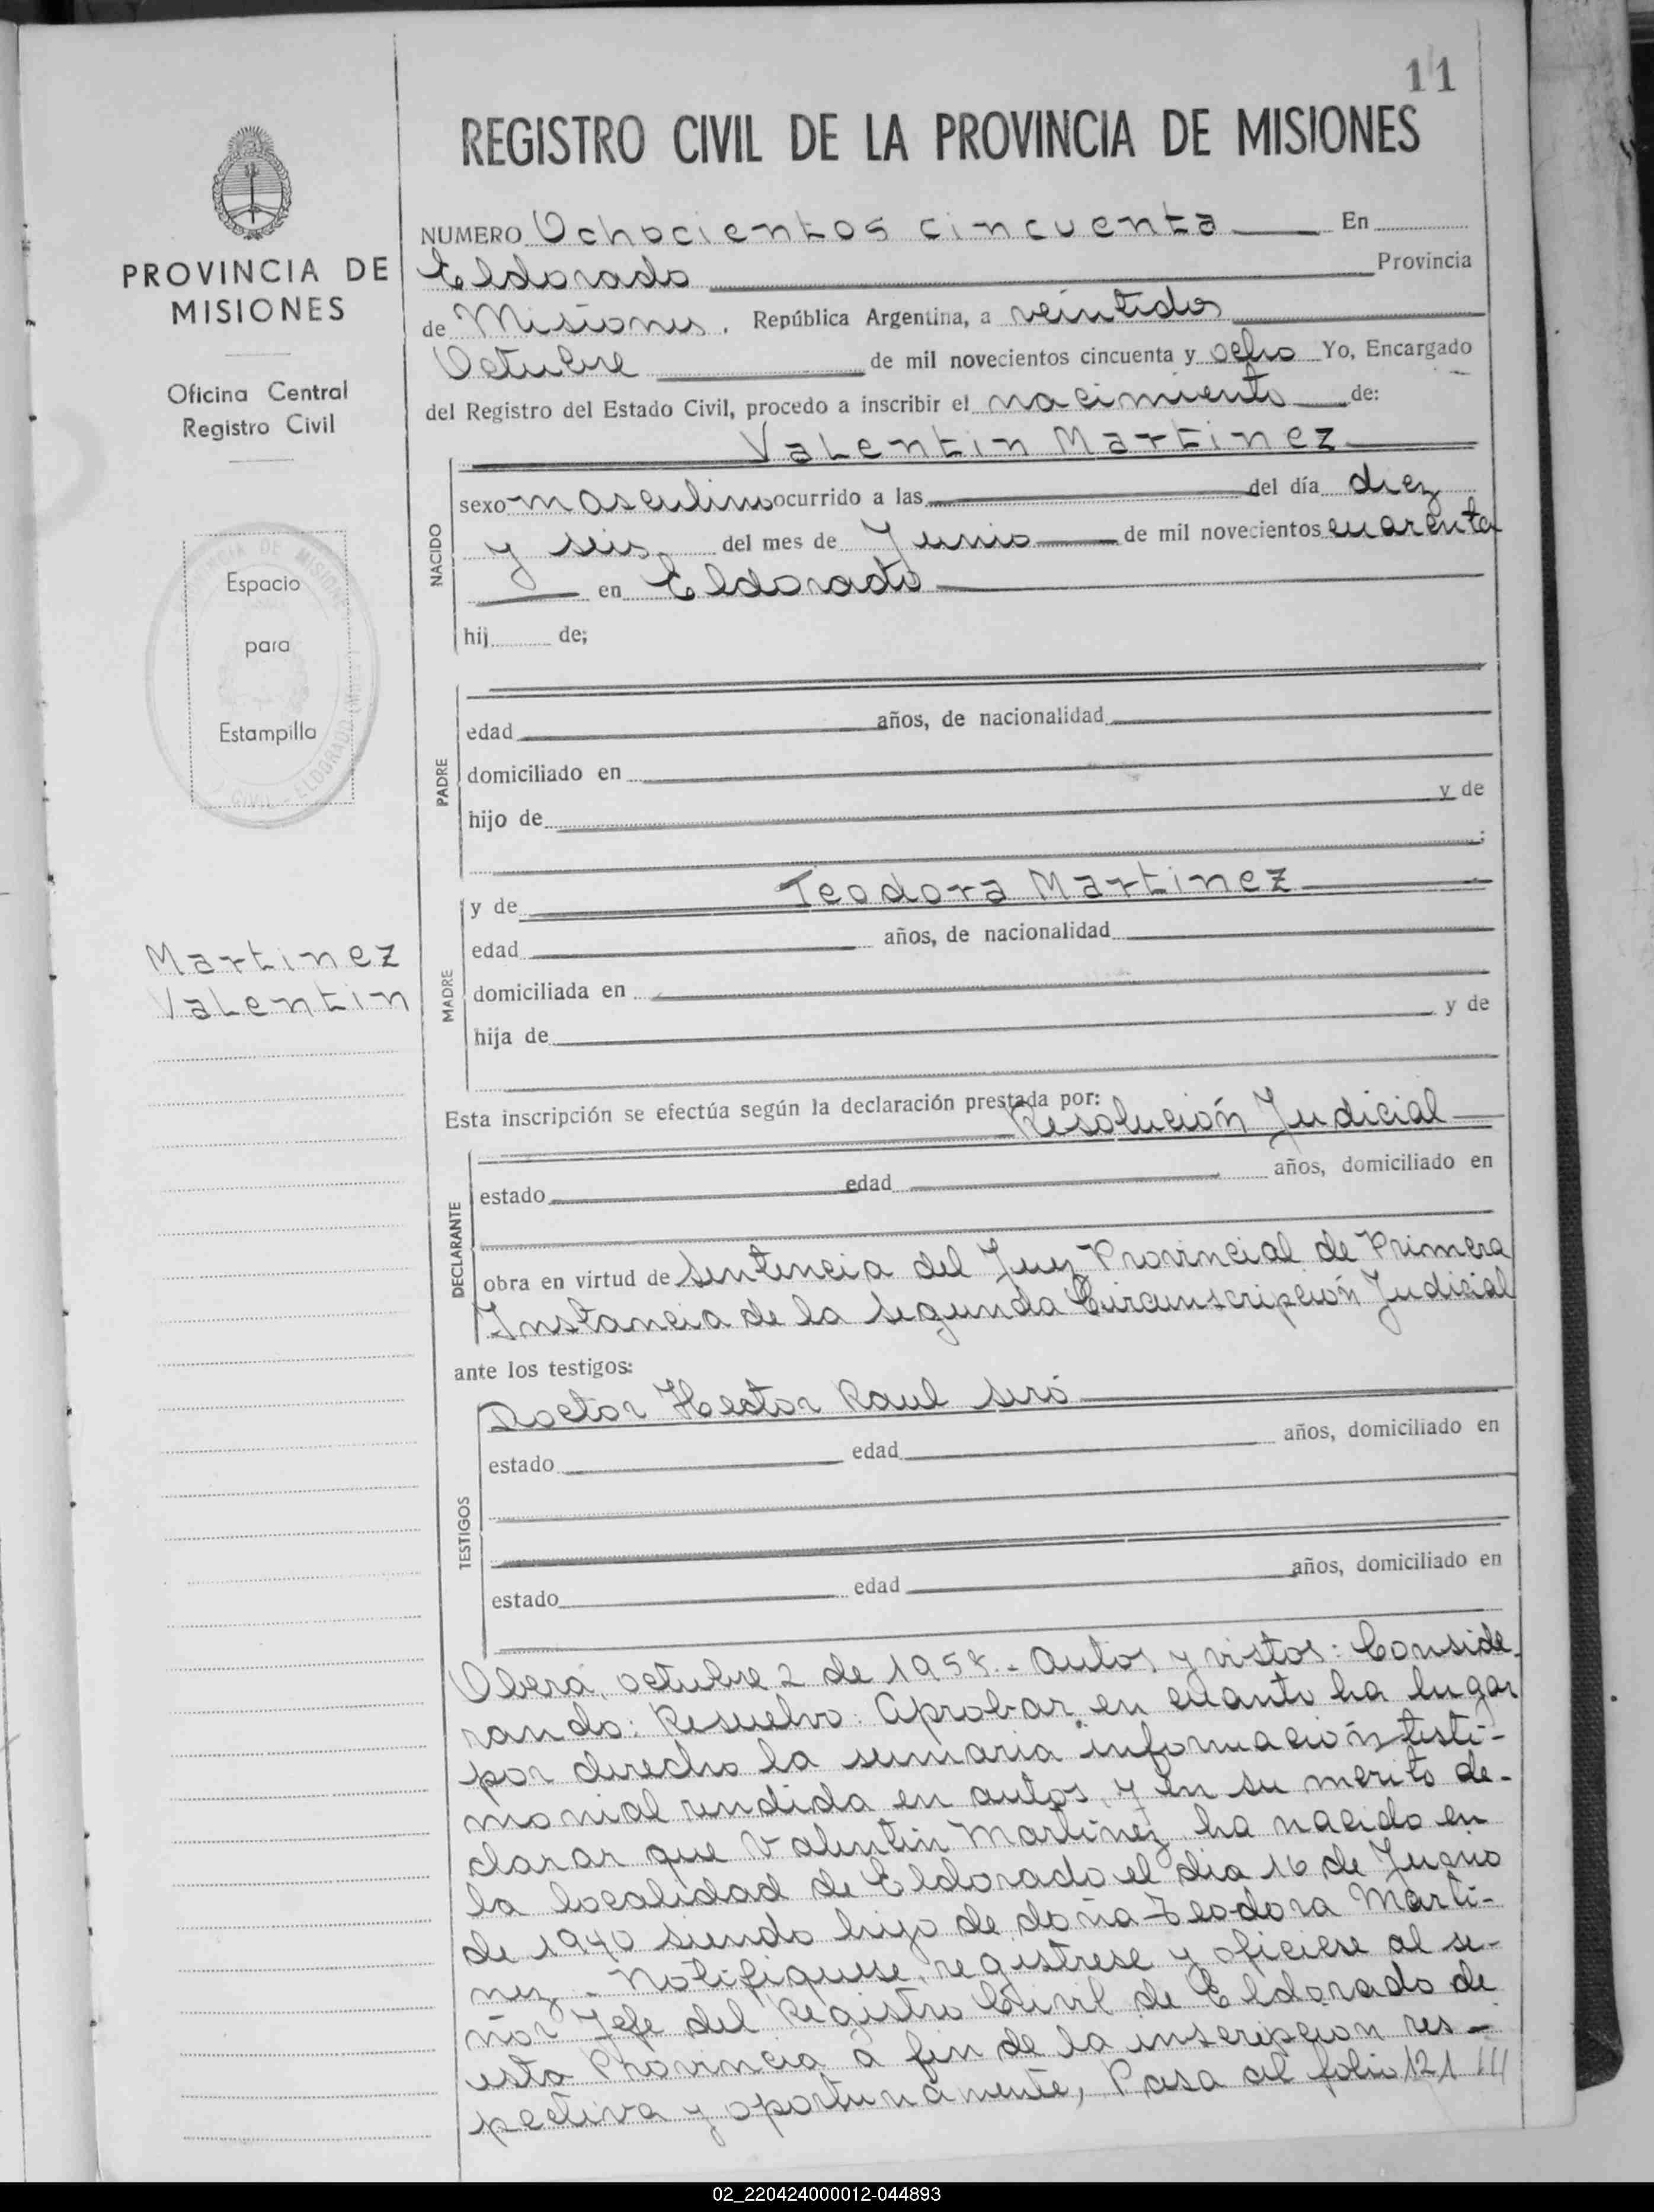 11
REGISTRO CIVIL DE LA PROVINCIA DE MISIONES
PROVINCIA DE
MISIONES
Oficina Central
Registro Civil
Espacio
para
Estampilla
PROVINCIA DE MISIONES
CIVIL - ELDORADO
Martinez
Valentin
NUMERO Ochocientos cincuenta En
Eldorado Provincia
de Misiones. República Argentina, a veintidos
Octubre de mil novecientos cincuenta y ocho Yo, Encargado
del Registro del Estado Civil, procedo a inscribir el nacimiento de:
Valentin Martinez
NACIDO
sexo masculino ocurrido a las del día diez
y seis, del mes de Junio de mil novecientos cuarenta
en Eldorado
hij de;
PADRE
edad años, de nacionalidad
domiciliado en
hijo de y de
;
MADRE
y de Teodora Martinez
edad años, de nacionalidad
domiciliada en
hija de y de
Esta inscripción se efectúa según la declaración prestada por:
Resolución Judicial
DECLARANTE
estado edad años, domiciliado en
obra en virtud de sentencia del Juez Provincial de Primera
Instancia de la segunda Circunscripción Judicial
ante los testigos:
Doctor Hector Raul seró
TESTIGOS
estado edad años, domiciliado en
estado edad años, domiciliado en
Oberá, octubre 2 de 1958.- Autos y vistos: Conside-
rando: Resuelvo: Aprobar en cuanto ha lugar
por derecho la sumaria información testi-
monial rendida en autos, y en su merito de-
clarar que Valentin Martinez ha nacido en
la localidad de Eldorado el dia 16 de Junio
de 1940 siendo hijo de doña Teodora Marti-
nez - Notifiquese, registrese y oficiese al se-
ñor Jefe del Registro Civil de Eldorado de
esta Provincia a fin de la inscripcion res-
pectiva y oportunamente, Pasa al folio 121 ///
02_220424000012-044893